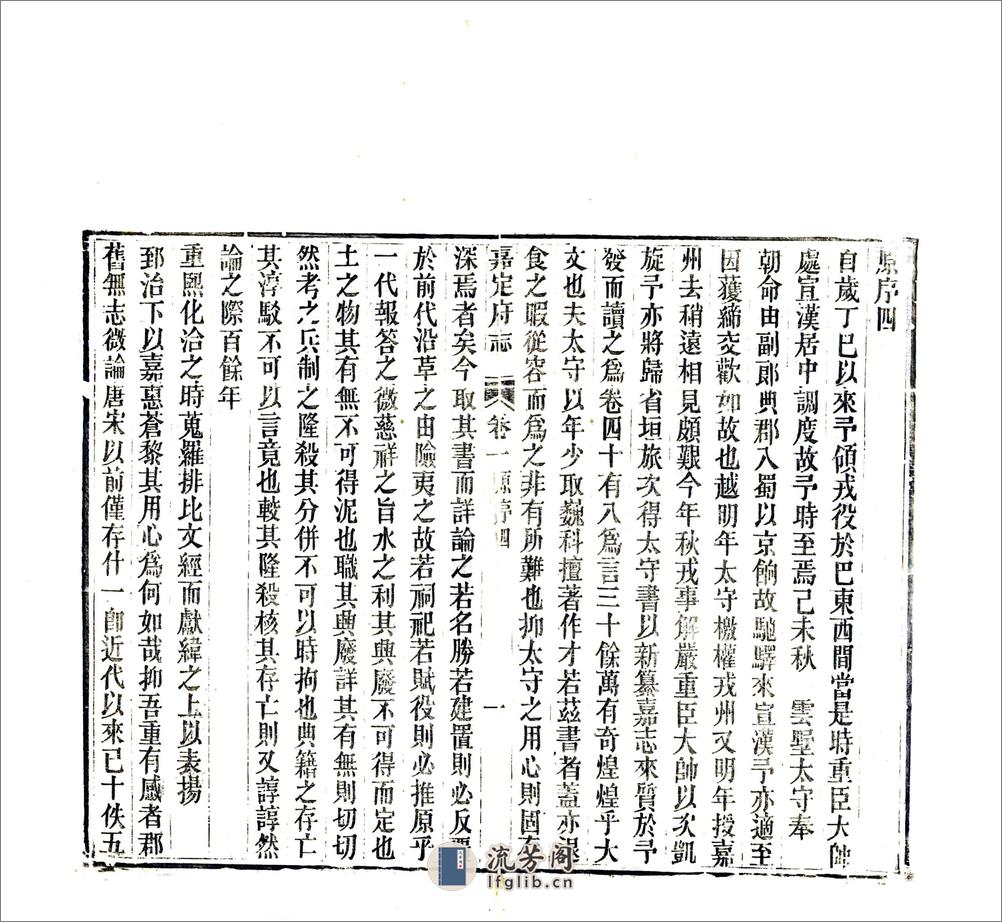 原序四
自歲丁巳以來予領戎役於巴東西間當是時重臣大帥
處宣漢居中調度故予時至焉己未秋　雲墅太守奉
朝命由副郎典郡入蜀以京餉故馳驛來宣漢予亦適至
因獲締交歡如故也越明年太守檄權戎州又明年授嘉
州去稍遠相見頗艱今年秋戎事解嚴重臣大帥以次凱
旋予亦將歸省垣旅次得太守書以新纂嘉志來質於予
發而讀之爲卷四十有八爲言三十餘萬有奇煌煌乎大
文也夫太守以年少取巍科擅著作才若茲書者蓋亦退
食之暇從容而爲之非有所難也抑太守之用心則固有
嘉定府志 卷一 原序四 一
深焉者矣今取其書而詳論之若名勝若建置則必反覆
於前代沿革之由險夷之故若祠祀若賦役則必推原乎
一代報答之微慈祥之旨水之利其興廢不可得而定也
土之物其有無不可得泥也職其興廢詳其有無則切切
然考之兵制之隆殺其分併不可以時拘也典籍之存亡
其淳駁不可以言竟也較其隆殺核其存亡則又諄諄然
論之際百餘年
重熙化洽之時蒐羅排比文經而獻緯之上以表揚
郅治下以嘉惠蒼黎其用心爲何如哉抑吾重有感者郡
舊無志微論唐宋以前僅存什一卽近代以來已十佚五
流芳阁
lfglib.cn